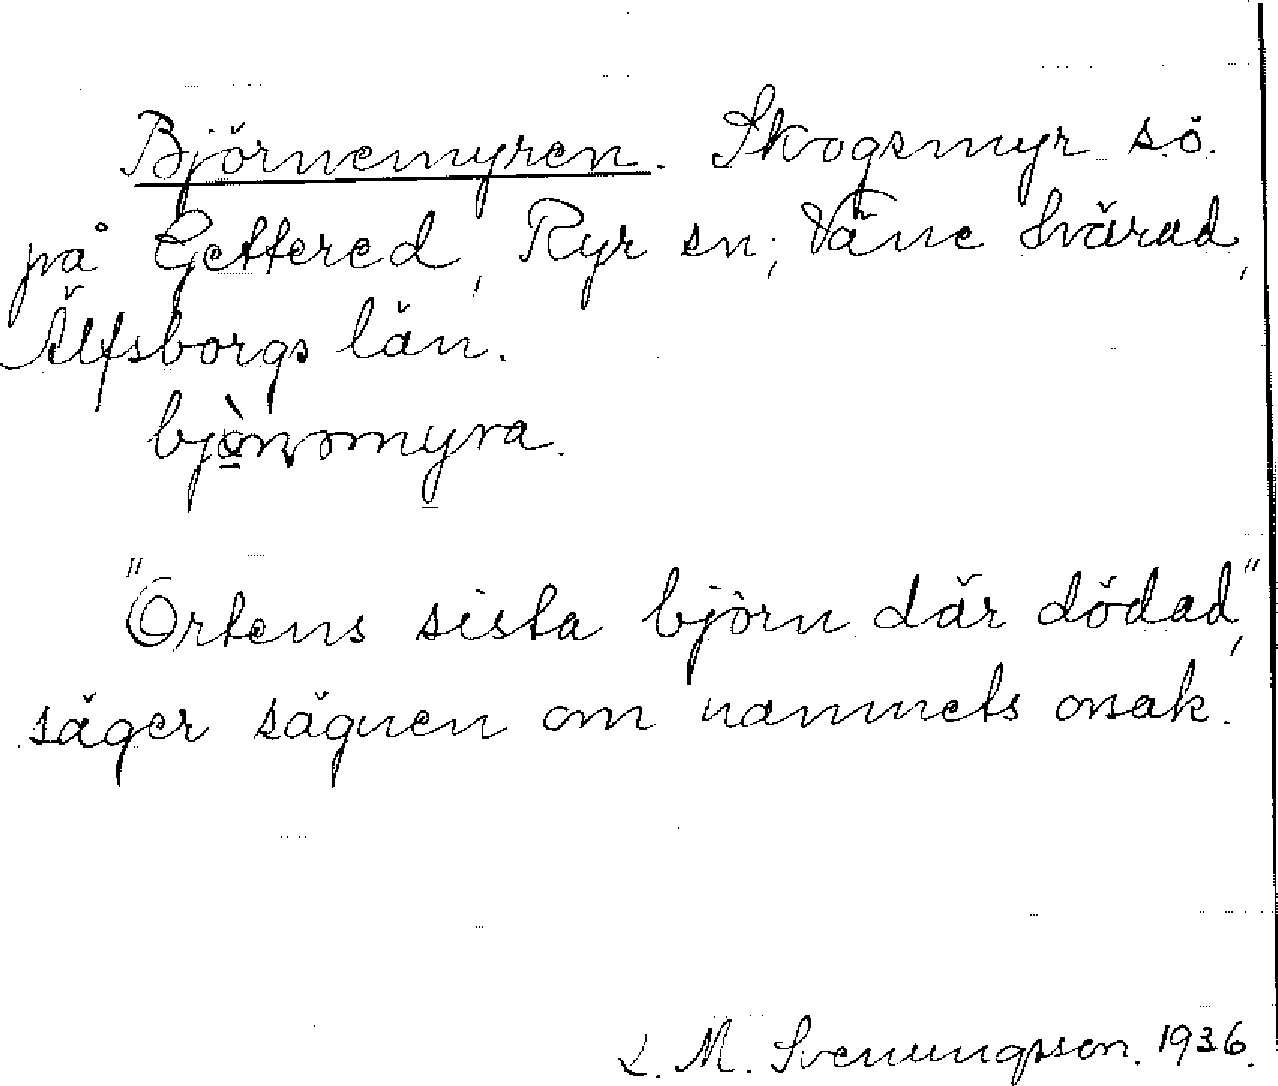 Björnemyren. Skogsmyr sö.
på Gettered, Ryr sn; Väne härad,
Älfsborgs län.
bjònomyra.
"Ortens sista björn där dödad",
säger sägnen om namnets orsak.
L. M. Svenungsson. 1936.